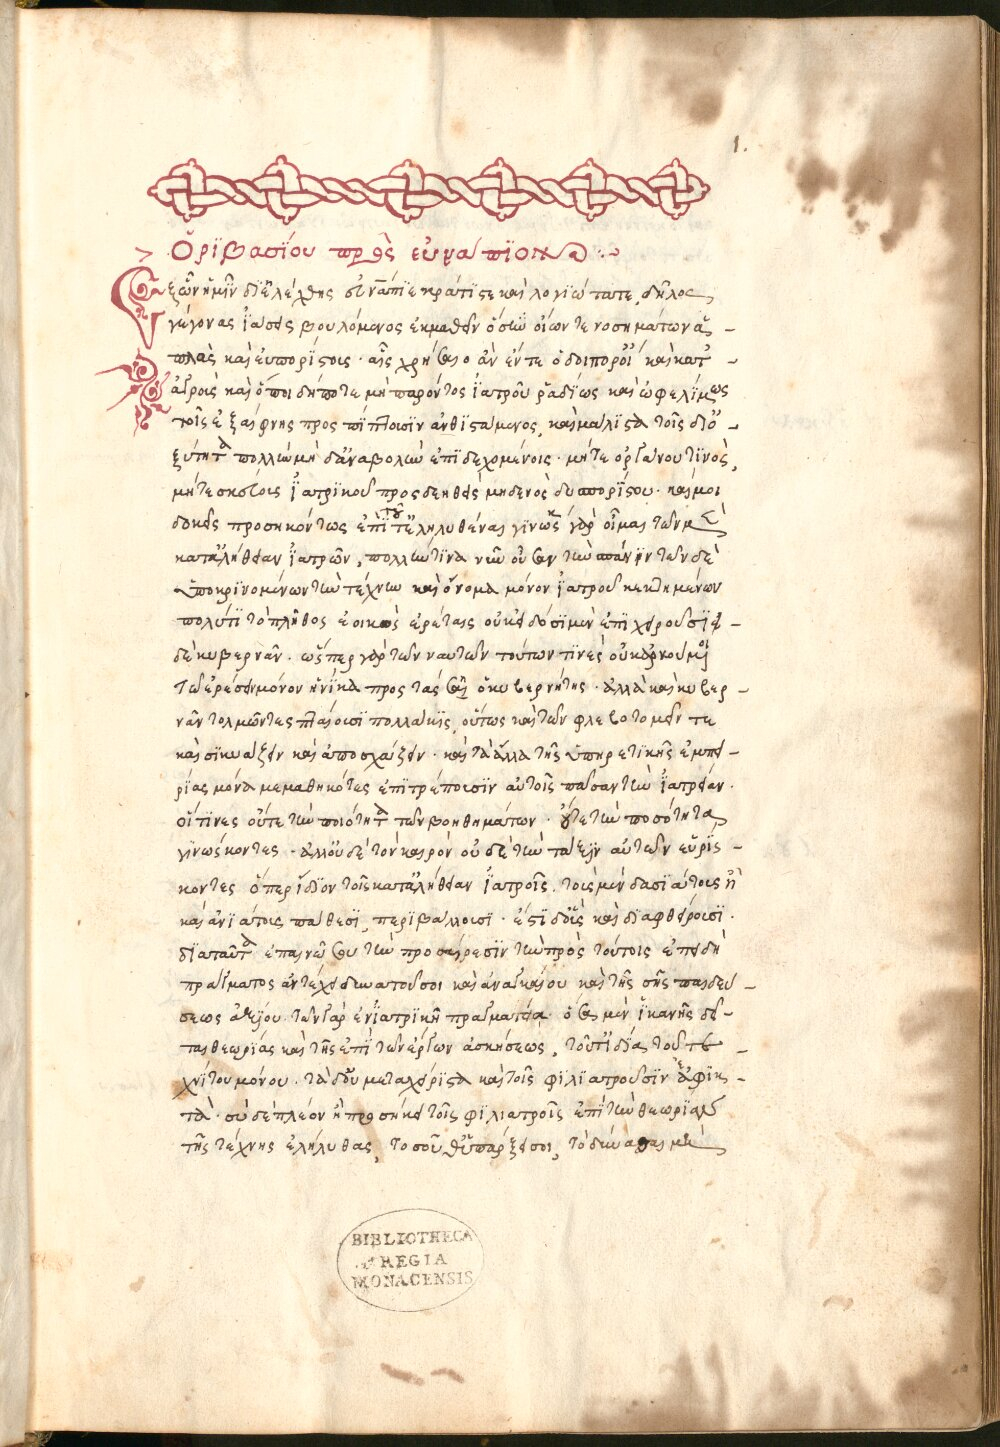 1.
Ὀριβασίου πρὸς εὐνάπιον
ἐξ ὧν ἡμῖν διελέχθης εὐνάπιε κράτιστε καὶ λογιώτατε, δῆλος
γέγονας ἴσως βουλόμενος ἐκμαθεῖν ὅσων οἷόν τε νοσημάτων ἁ
πλαῖς καὶ εὐπορίστοις αἷς χρήσαιο ἂν ἔν τε ὁδοιπορίᾳ καὶ κατ
ἀγροὺς καὶ ὅποι δήποτε μὴ παρόντος ἰατροῦ ῥαδίως καὶ ὠφελίμως
τοῖς ἐξαίφνης προσπίπτουσιν ἀνθιστάμενος, καὶ μάλιστα τοῖς δι' ὀ
ξύτητα πολλὴν μὴδ' ἀναβολὴν ἐπιδεχομένοις. μήτε ὀργάνου τινὸς,
μήτε σκεύους ἰατρικοῦ προσδεηθεὶς μηδενὸς δυσπορίστου. καί μοι
δοκεῖς προσηκόντως ἐπὶ τοῦτ' ἐληλυθέναι γινώσκειν γὰρ οἶμαι τῶν μὲν
κατ' ἀλήθειαν ἰατρῶν, πολλήν τινα νῦν οὖσαν τὴν σπάνιν τῶν δὲ
ὑποκρινομένων τὴν τέχνην καὶ ὄνομα μόνον ἰατροῦ κεκτημένων
πολύ τι τὸ πλῆθος
δὲ κυβερνᾶν. ὥσπερ γὰρ τῶν ναυτῶν τούτων τινὲς οὐκ ἀρκούμενοι
τῷ ἐρέσσειν μόνον ἡνίκα προστάσσῃ ὁ κυβερνήτης. ἀλλὰ καὶ κυβερ
νᾶν τολμῶντες πταίουσι πολλάκις, οὕτως καὶ τῶν φλεβοτομεῖν τε
καὶ σικυάζειν καὶ ἀποσχάζειν. καὶ τὰ ἄλλα τῆς ὑπηρετικῆς ἐμπει
ρίας μόνα μεμαθηκότες ἐπιτρέπουσιν αὑτοῖς πᾶσαν τὴν ἰατρείαν.
οἵτινες οὔτε τὴν ποιότητα τῶν βοηθημάτων. οὔτε τὴν ποσότητα
γινώσκοντες. ἀλλ' οὐδὲ τὸν καιρὸν οὐδὲ τὴν τάξιν αὐτῶν εὑρίς
κοντες ὅπερ ἴδιον τοῖς κατ' ἀλήθειαν ἰατροῖς,
καὶ ἀνιάτοις πάθεσι, περιβάλλουσι. ἔστι δ' οἷς καὶ διαφθείρουσι.
διὰ ταῦτα ἐπαινῶ σου τὴν προαίρεσιν τὴν πρὸς τούτοις ἐπειδὴ
πράγματος ἀντέχει δυνατοῦ σοι καὶ ἀναγκαίου καὶ τῆς σῆς παιδεύ
σεως ἀξίου. τῶν γὰρ ἐν ἰατρικῇ πραγματείᾳ. ὅσα μὲν ἱκανῆς δεῖ
ται θεωρίας καὶ τῆς ἐπὶ τῶν ἔργων ἀσκήσεως, ταῦτ' ἴδια τοῦ τε
χνίτου μόνου. τὰ δ' εὐμεταχείριστα καὶ τοῖς φιλιατροῦσιν ἐφικ
τά. σὺ δὲ πλέον ἢ προσῆκε τοῖς φιλιατροῖς ἐπὶ τὴν θεωρίαν
τῆς τέχνης ἐλήλυθας,
BIBLIOTHECA
REGIA
MONACENSIS